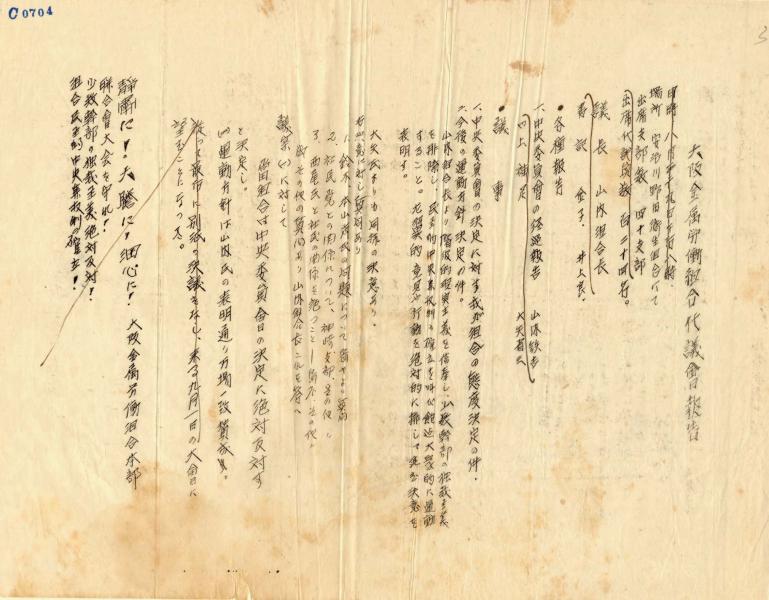 C0704
大阪金属労働組合代議會報告
日時 八月二十九日
場所 安治川野田衛生組合にて
出席支部数 四十支部
出席代議員数 百二十四名。
議長 山内組合長
書記 金子、井上良、
●各種報告
一、中央委員會の経過報告 山内鉄吉
仝上補足 大矢省三
●議事
一、中央委員會の決定に対する我が組合の態度決定の件、
二、今後の運動方針決定の件。
山内組合長より階級的現実主義を信奉し、少数幹部の独裁主義
を排除し、民主的中央集権制の確立を叫び飽迄大衆的に運動
すること。左翼的意見や行動を絶対的に排して進む決意を
表明す。
大矢氏よりも同様の決意あり。
右の意に対し質問あり
1、鈴木、本山両氏の問題について
2、社民党との関係について、神崎支部、其の他、
3、西尾氏と社民の関係を絶つこと
その他の質問あり山内組合長これを答へ
議案(1)に対して
吾組合は中央委員會の決定に絶対反対す
と決定し。
(2)運動方針は山内氏の表明通り万場一致賛成。
従って最市に別紙の決議をなし、来る九月一日の大会に
望むことになった。
静粛に!。大膽に!細心に! 大阪金属労働組合本部
聯合會大会を守れ!
少数幹部の独裁主義絶対反対!
組合民主的中央集権制の確立!